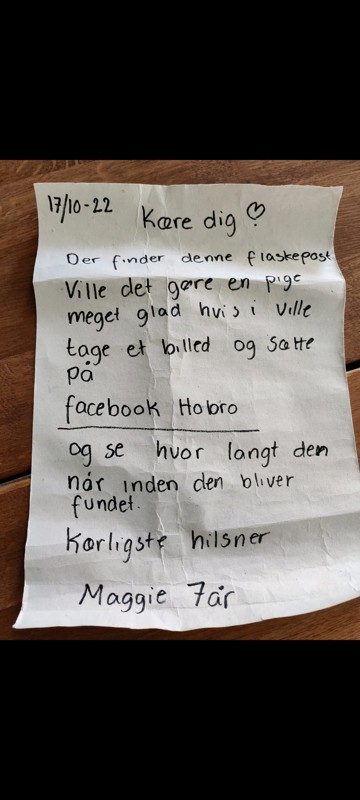 17/10-22
Kære dig ♡
Der finder denne flaskepost
Ville det gøre en pige
meget glad hvis i ville
tage et billed og sætte
på
facebook Hobro
og se hvor langt den
når inden den bliver
fundet.
Kærligste hilsner
Maggie 7år